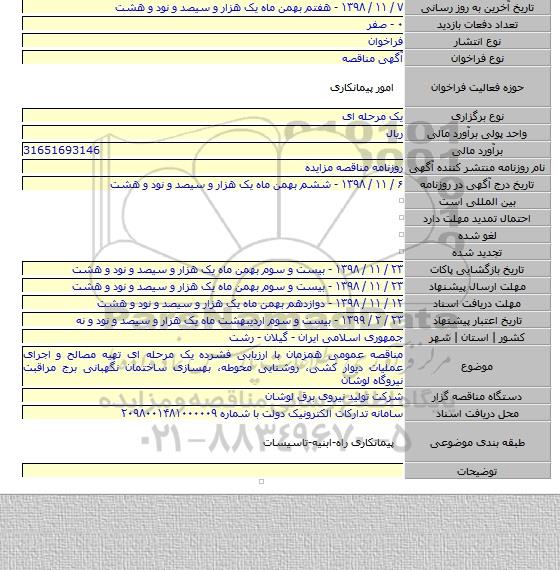 تاریخ آخرین به روز رسانی ۷ / ۱۱ / ۱۳۹۸ - هفتم بهمن ماه یک هزار و سیصد و نود و هشت
تعداد دفعات بازدید ۰ - صفر
نوع انتشار فراخوان
نوع فراخوان آگهی مناقصه
حوزه فعالیت فراخوان امور پیمانکاری
نوع برگزاری یک مرحله ای
واحد پولی برآورد مالی ریال
برآورد مالی 31651693146
نام روزنامه منتشر کننده آگهی روزنامه مناقصه مزایده
تاریخ درج آگهی در روزنامه ۶ / ۱۱ / ۱۳۹۸ - ششم بهمن ماه یک هزار و سیصد و نود و هشت
بین المللی است
احتمال تمدید مهلت دارد
لغو شده
تجدید شده
تاریخ بازگشایی پاکات ۲۳ / ۱۱ / ۱۳۹۸ - بیست و سوم بهمن ماه یک هزار و سیصد و نود و هشت
مهلت ارسال پیشنهاد ۲۳ / ۱۱ / ۱۳۹۸ - بیست و سوم بهمن ماه یک هزار و سیصد و نود و هشت
مهلت دریافت اسناد ۱۲ / ۱۱ / ۱۳۹۸ - دوازدهم بهمن ماه یک هزار و سیصد و نود و هشت
تاریخ اعتبار پیشنهاد ۲۳ / ۲ / ۱۳۹۹ - بیست و سوم اردیبهشت ماه یک هزار و سیصد و نود و نه
کشور | استان | شهر جمهوری اسلامی ایران - گیلان - رشت
موضوع مناقصه عمومی همزمان با ارزیابی فشرده یک مرحله ای تهیه مصالح و اجرای
عملیات دیوار کشی، روشنایی محوطه، بهسازی ساختمان نگهبانی برج مراقبت
نیروگاه لوشان
دستگاه مناقصه گزار شرکت تولید نیروی برق لوشان
محل دریافت اسناد سامانه تدارکات الکترونیک دولت با شماره ۲۰۹۸۰۰۱۴۸۱۰۰۰۰۰۹
طبقه بندی موضوعی پیمانکاری راه-ابنیه-تاسیسات
توضیحات
۰۲۱-۸۸۳۴۹۶۷۰-۵